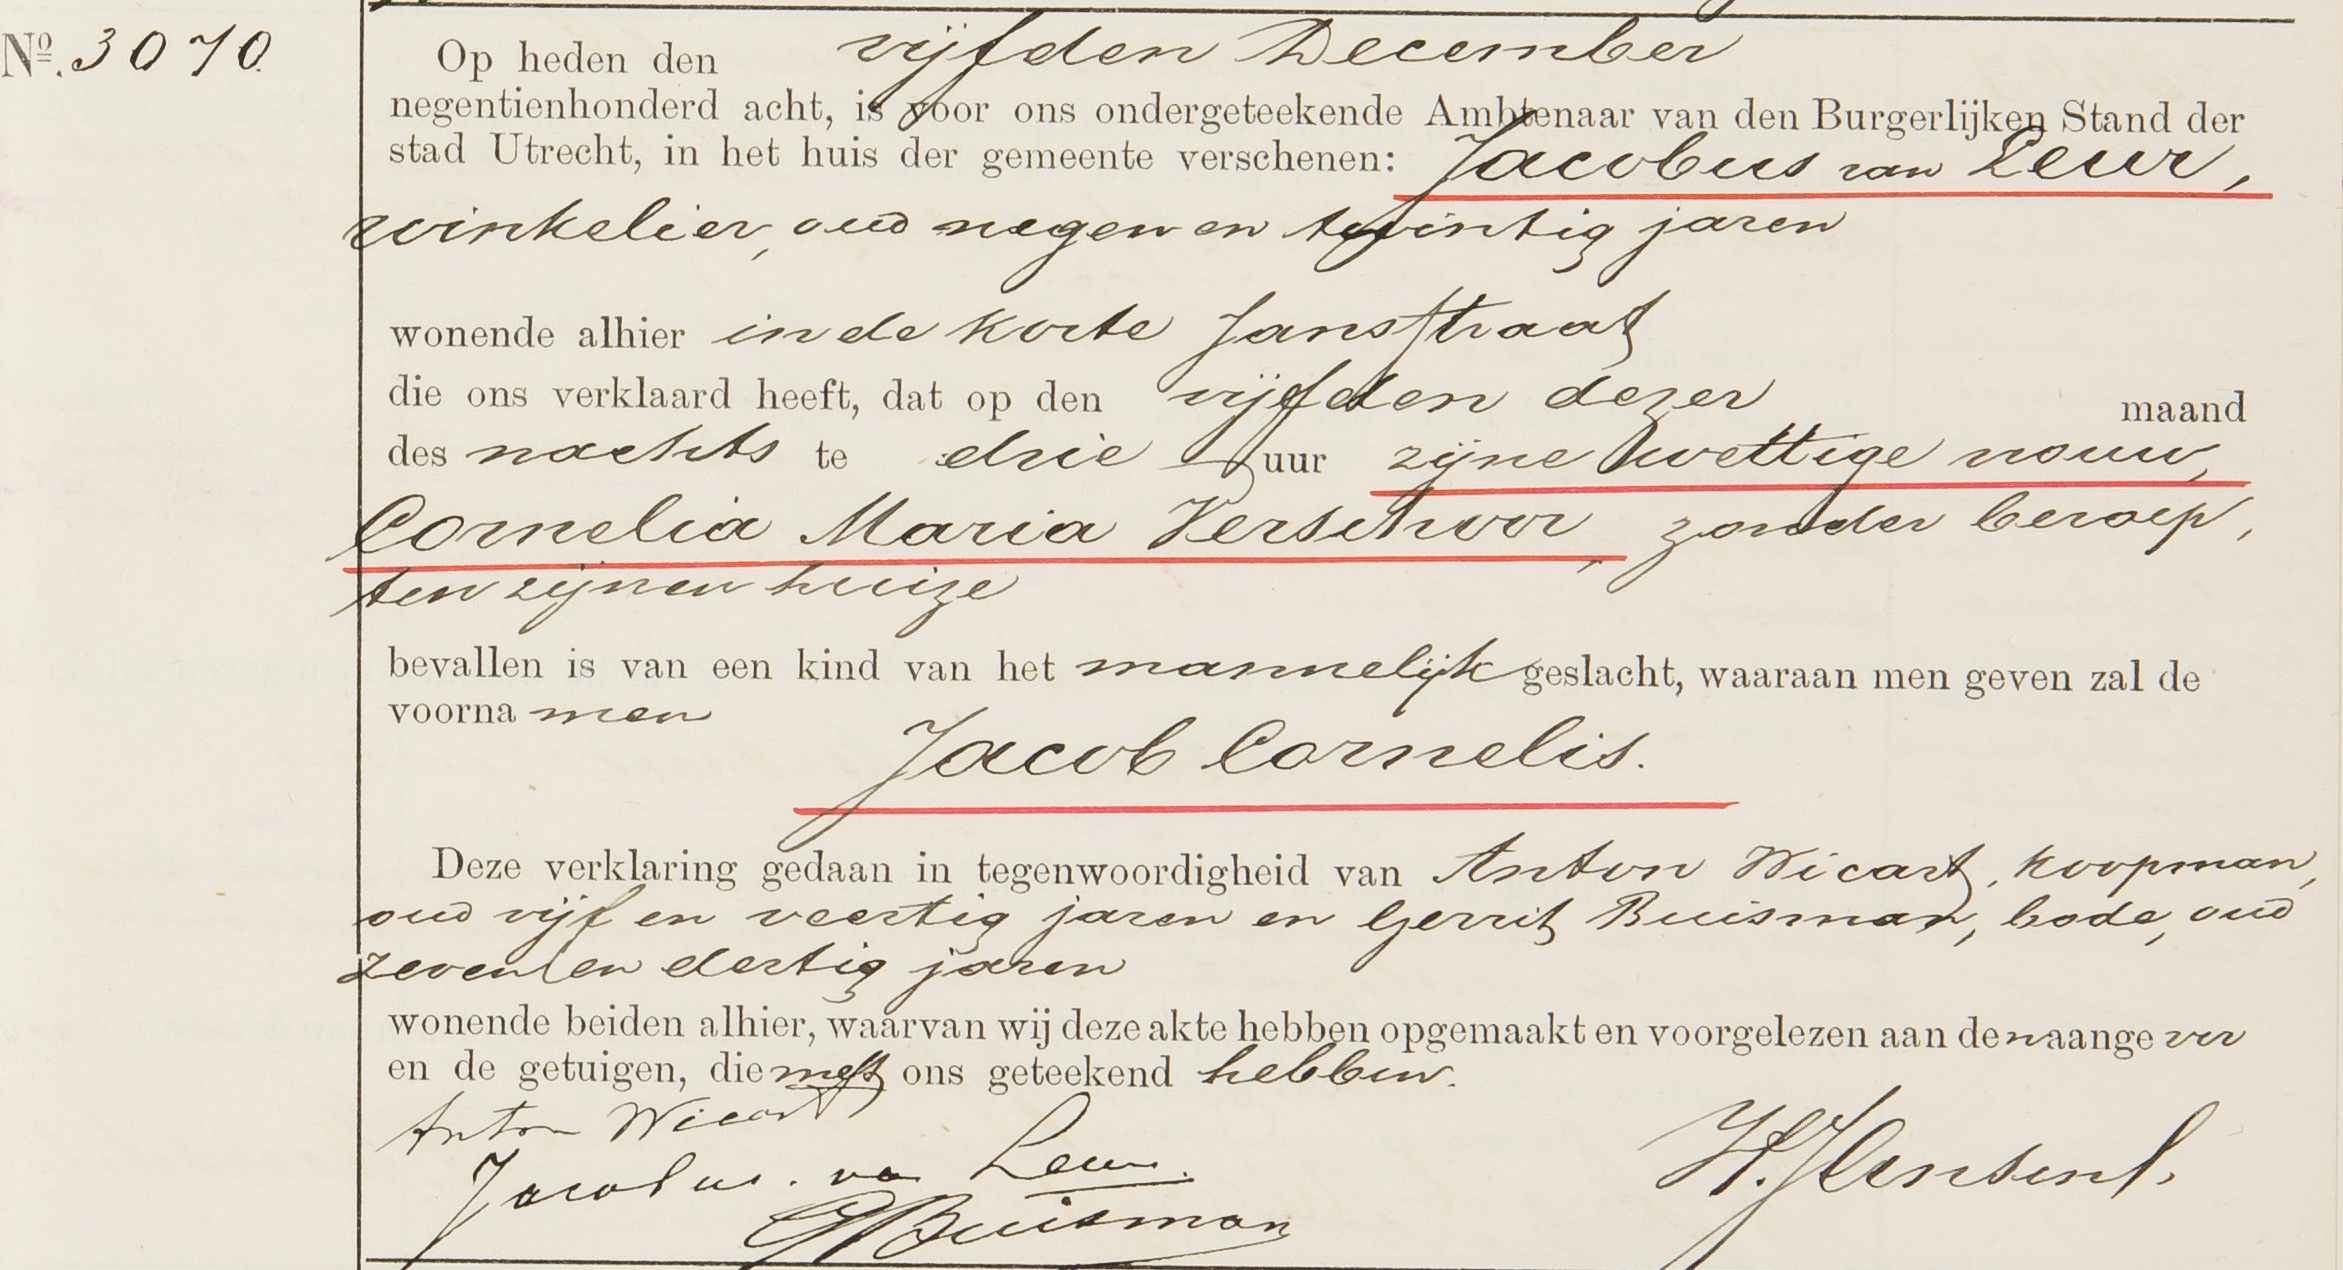 No. 3070
Op heden den vijfden December
negentienhonderd acht, is voor ons ondergeteekende Ambtenaar van den Burgerlijken Stand der
stad Utrecht, in het huis der gemeente verschenen: Jacobus van Leur,
winkelier, oud negen en twintig jaren
wonende alhier in de Korte Jansstraat
die ons verklaard heeft, dat op den vijfden dezer maand
des nachts te drie uur zijne wettige vrouw,
Cornelia Maria Verschoor, zonder beroep,
ten zijnen huize
bevallen is van een kind van het mannelijk geslacht, waaraan men geven zal de
voornamen
Jacob Cornelis.
Deze verklaring gedaan in tegenwoordigheid van Anton Wicart, koopman,
oud vijf en veertig jaren en Gerrit Buisman, bode, oud
zeven en dertig jaren
wonende beiden alhier, waarvan wij deze akte hebben opgemaakt en voorgelezen aan den aangever
en de getuigen, die met ons geteekend hebben.
Anton Wicart
Jacobus van Leur.
G Buisman